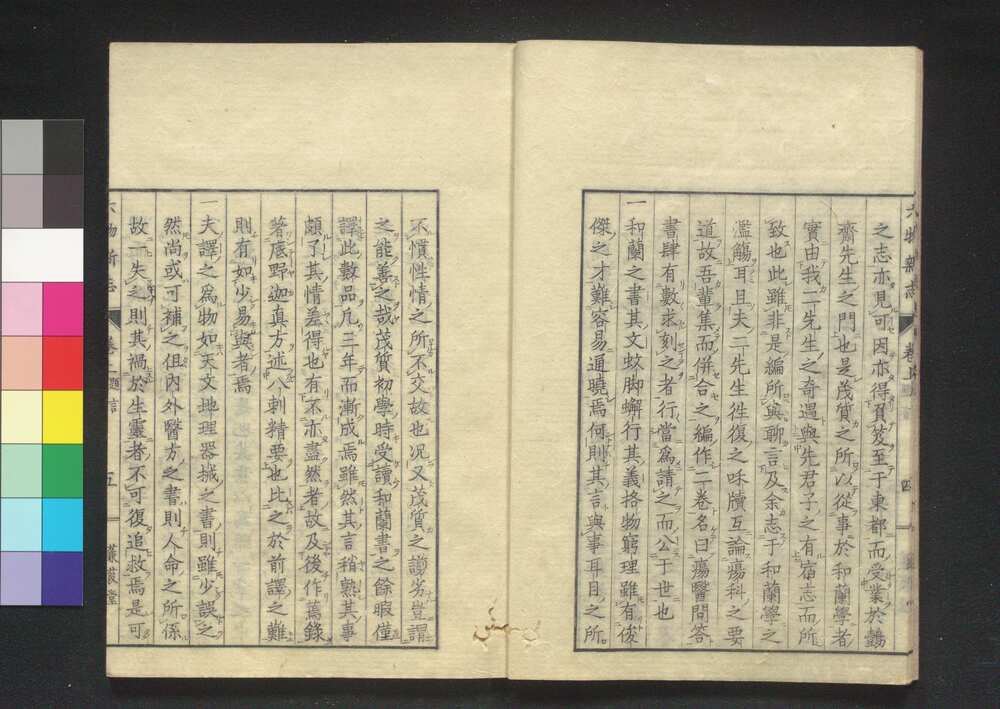 之志亦見可因亦得負笈至于東都而受業於鷧
齋先生之門也是茂質之所以從事於和蘭學者
實由我二先生之奇遇與先君子之有宿志而所
致也此雖非是編所與聊言及余志于和蘭學之
濫觴耳且夫二先生徃復之味牘互論瘍科之要
道故吾輩集而併合之編作二卷名曰瘍醫問答
書肆有數求刻之者行當爲請之而公于世也
一和蘭之書其文蚊脚蠏行其義格物窮理雖有俊
傑之才難容易通曉焉何則其言與事耳目之所
六物新志
卷上
題言
五
不慣性情之所不交故也况又茂質之謭劣豈謂
之能善之哉茂質初學時受讀和蘭書之餘暇僅
譯此數品凡三年而漸成焉雖然其言稍熟其事
頗了其情差得也有不亦盡然者故及後作蔫録
箸底野迦真方述八刺精要也比之於前譯之難
則有如少易與者焉
一夫譯之爲物如天文地理器械之書則雖少誤之
然尚或可補之但内外醫方之書則人命之所係
故一失之則其禍於生靈者不可復追救焉是可